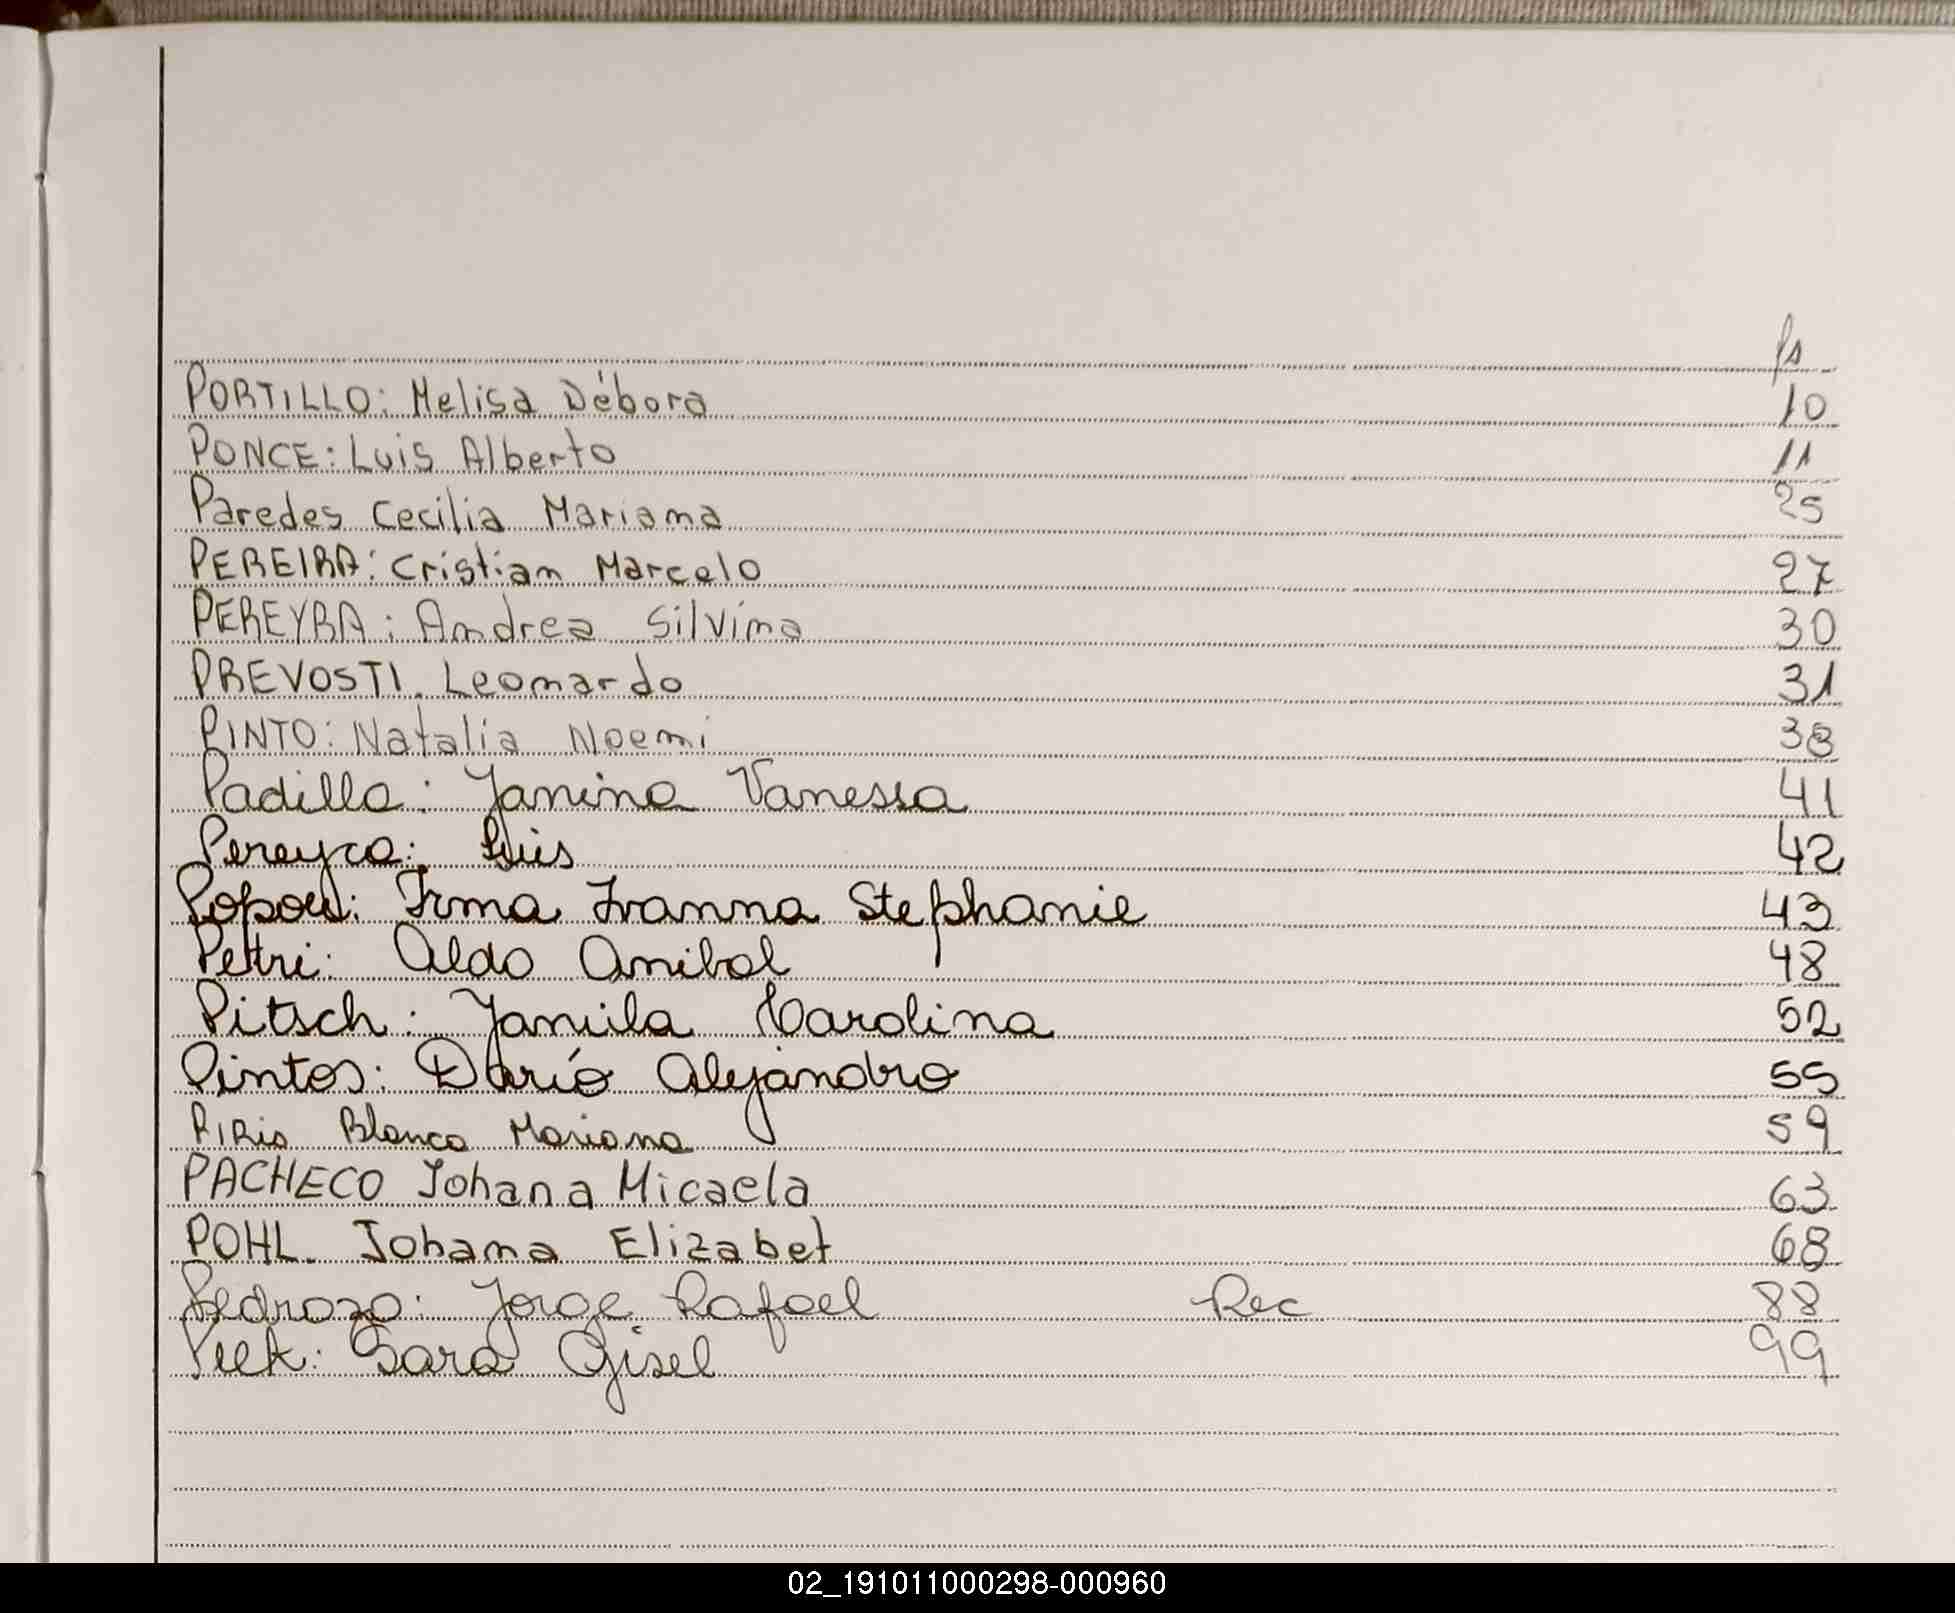 fs
PORTILLO: Melisa Débora 10
PONCE: Luis Alberto 11
Paredes Cecilia Mariana 25
PEREIRA: Cristian Marcelo 27
PEREYRA: Andrea Silvina 30
PREVOSTI. Leonardo 31
PINTO: Natalia Noemi 38
Padilla: Yanina Vanessa 41
Pereyra: Luis 42
Popow: Irma Ivanna Stephanie 43
Petri: Aldo Anibal 48
Pitsch: Yamila Carolina 52
Pintos: Darío Alejandro 55
PIRis Blanca Mariana 59
PACHECO Johana Micaela 63
POHL. Johana Elizabet 68
Pedrozo: Jorge Rafael Rec 88
Peek: Sara Gisel 99
02_191011000298-000960